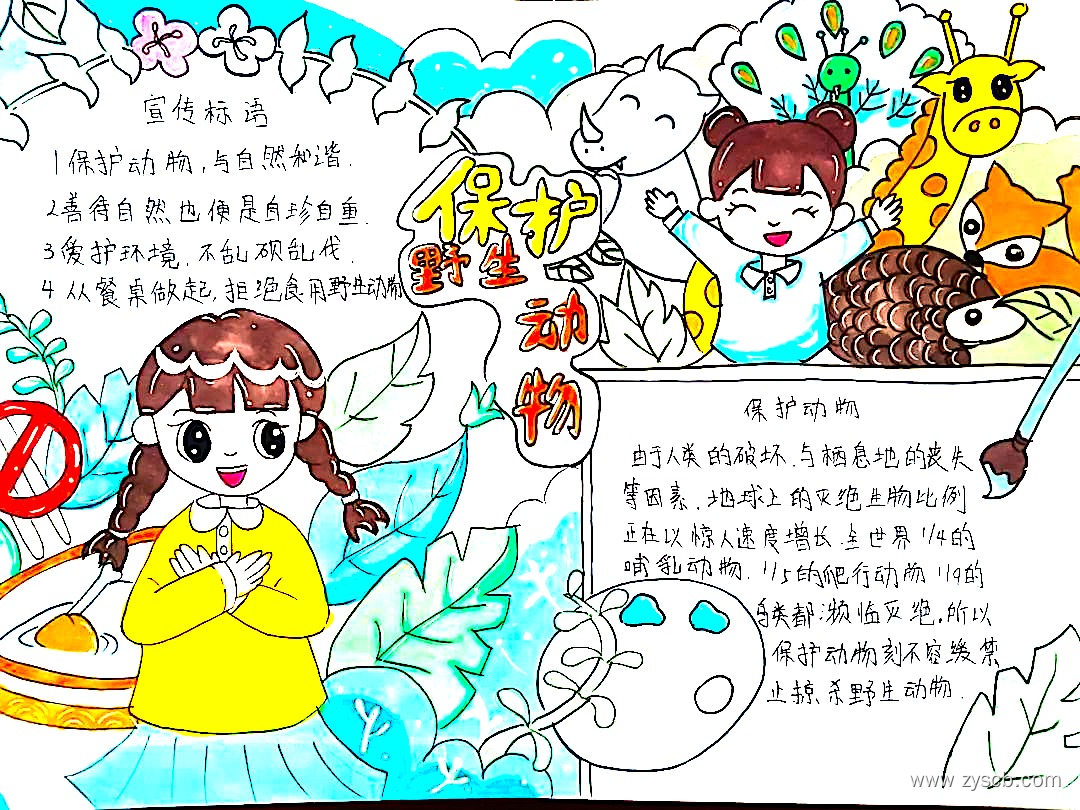 宣传标语
1保护动物,与自然和谐.
2善待自然也便是自珍自重.
3爱护环境,不乱砍乱伐.
4 从餐桌做起,拒绝食用野生动物
保护
野生
动
物
保护动物
由于人类的破坏,与栖息地的丧失
等因素,地球上的灭绝生物比例
正在以惊人速度增长.全世界1/4的
哺乳动物.1/5的爬行动物1/9的
鸟类都濒临灭绝.所以
保护动物刻不容缓禁
止掠杀野生动物.
www.zyscb.com